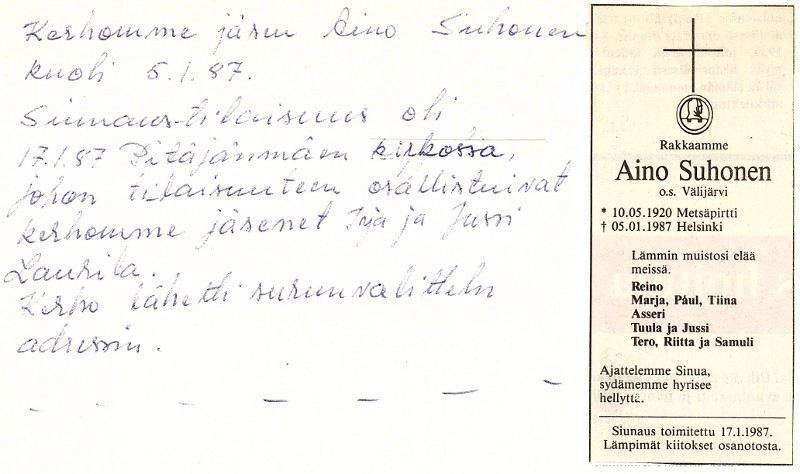 Kerhomme jäsen Aino Suhonen
kuoli 5.1.87.
Siunaus-tilaisuus oli
17.1.87 Pitäjänmäen kirkossa,
johon tilaisuuteen osallistuivat
kerhomme jäsenet Irja ja Jussi
Laurila.
Kerho lähetti surunvalittelu
adressin.
Rakkaamme
Aino Suhonen
o.s. Välijärvi
* 10.05.1920 Metsäpirtti
† 05.01.1987 Helsinki
Lämmin muistosi elää
meissä.
Reino
Marja, Påul, Tiina
Asseri
Tuula ja Jussi
Tero, Riitta ja Samuli
Ajattelemme Sinua,
sydämemme hyrisee
hellyttä.
Siunaus toimitettu 17.1.1987.
Lämpimät kiitokset osanotosta.